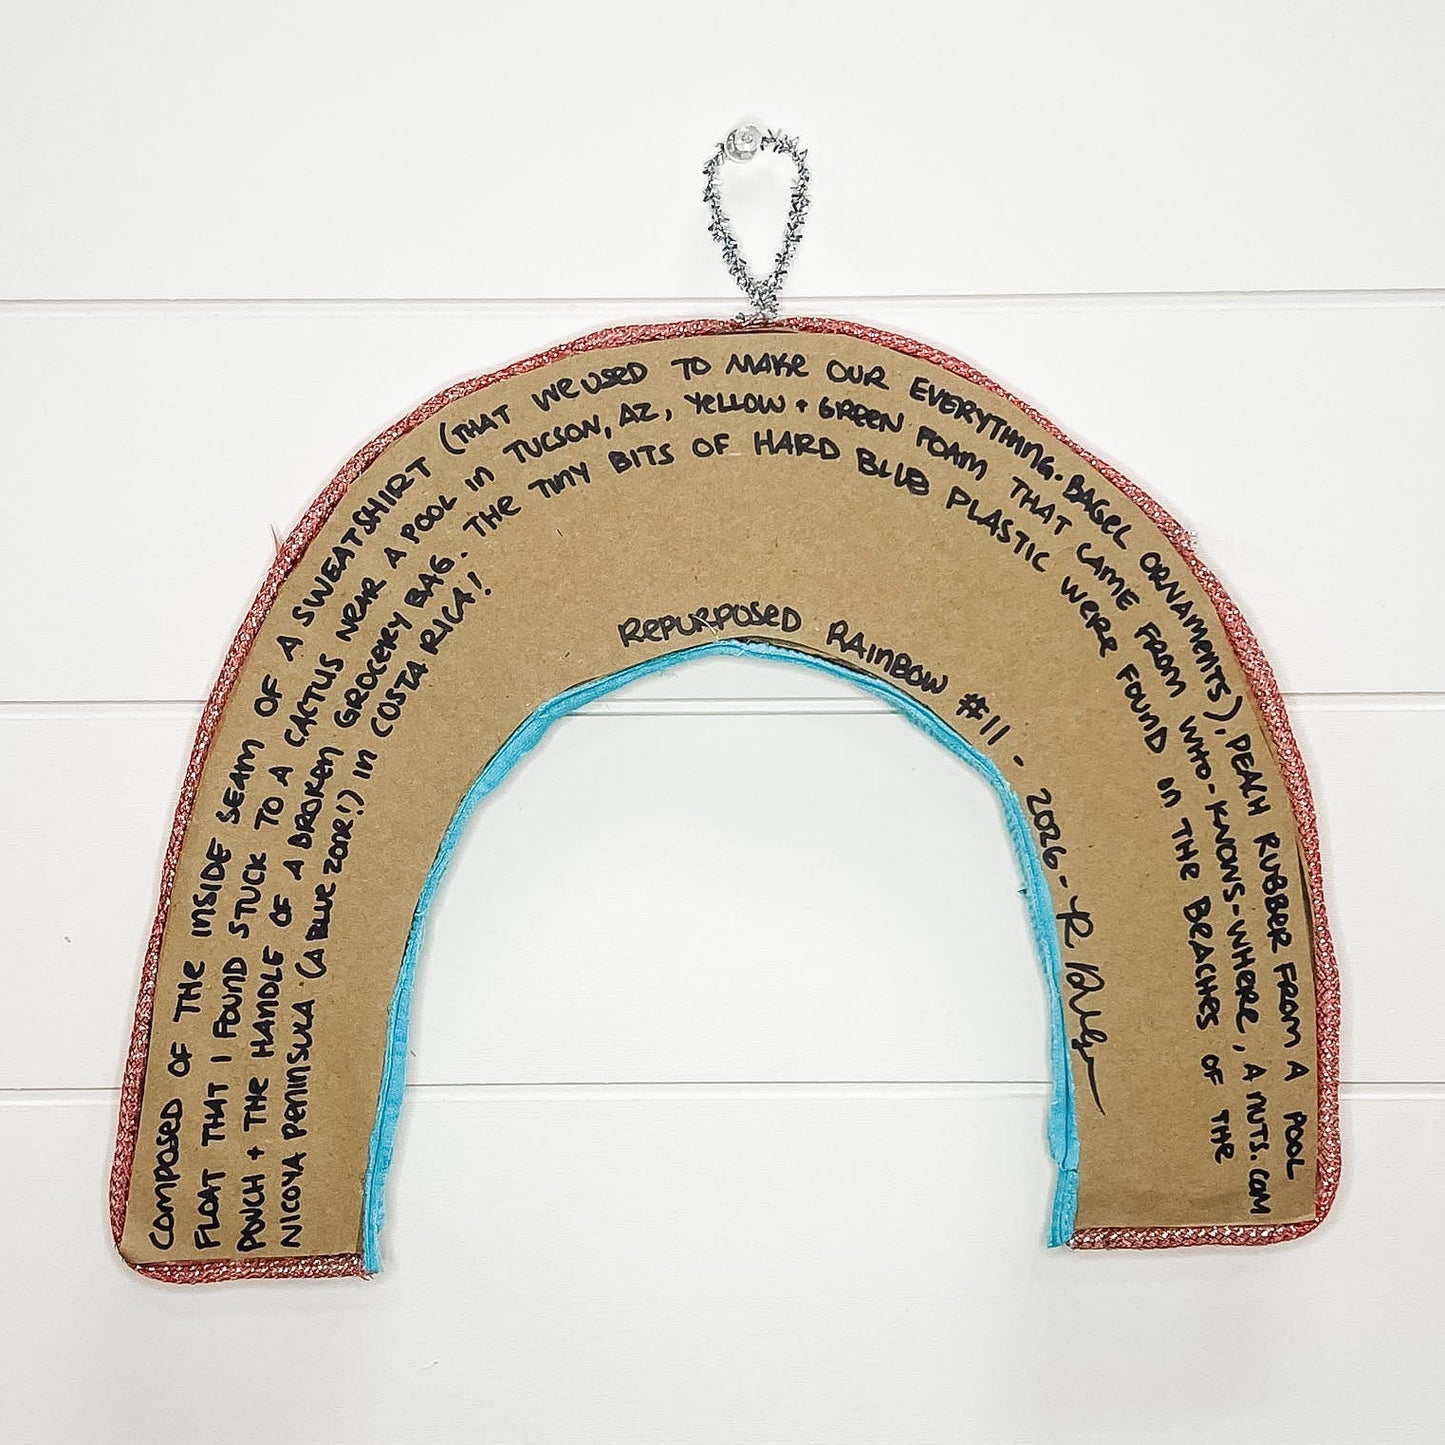 COMPOSED OF THE INSIDE SEAM OF A SWEATSHIRT (THAT WE USED TO MAKE OUR EVERYTHING. BAGEL ORNAMENTS), PEACH RUBBER FROM A POOL
FLOAT THAT I FOUND STUCK TO A CACTUS NEAR A POOL IN TUCSON, AZ, YELLOW + GREEN FOAM THAT CAME FROM WHO-KNOWS-WHERE, A NUTS.COM
POUCH + THE HANDLE OF A BROKEN GROCERY BAG. THE TINY BITS OF HARD BLUE PLASTIC WERE FOUND ON THE BEACHES OF THE
NICOYA PENINSULA (A BLUE ZONE!) IN COSTA RICA!
REPURPOSED RAINBOW #11 - 2026 - R